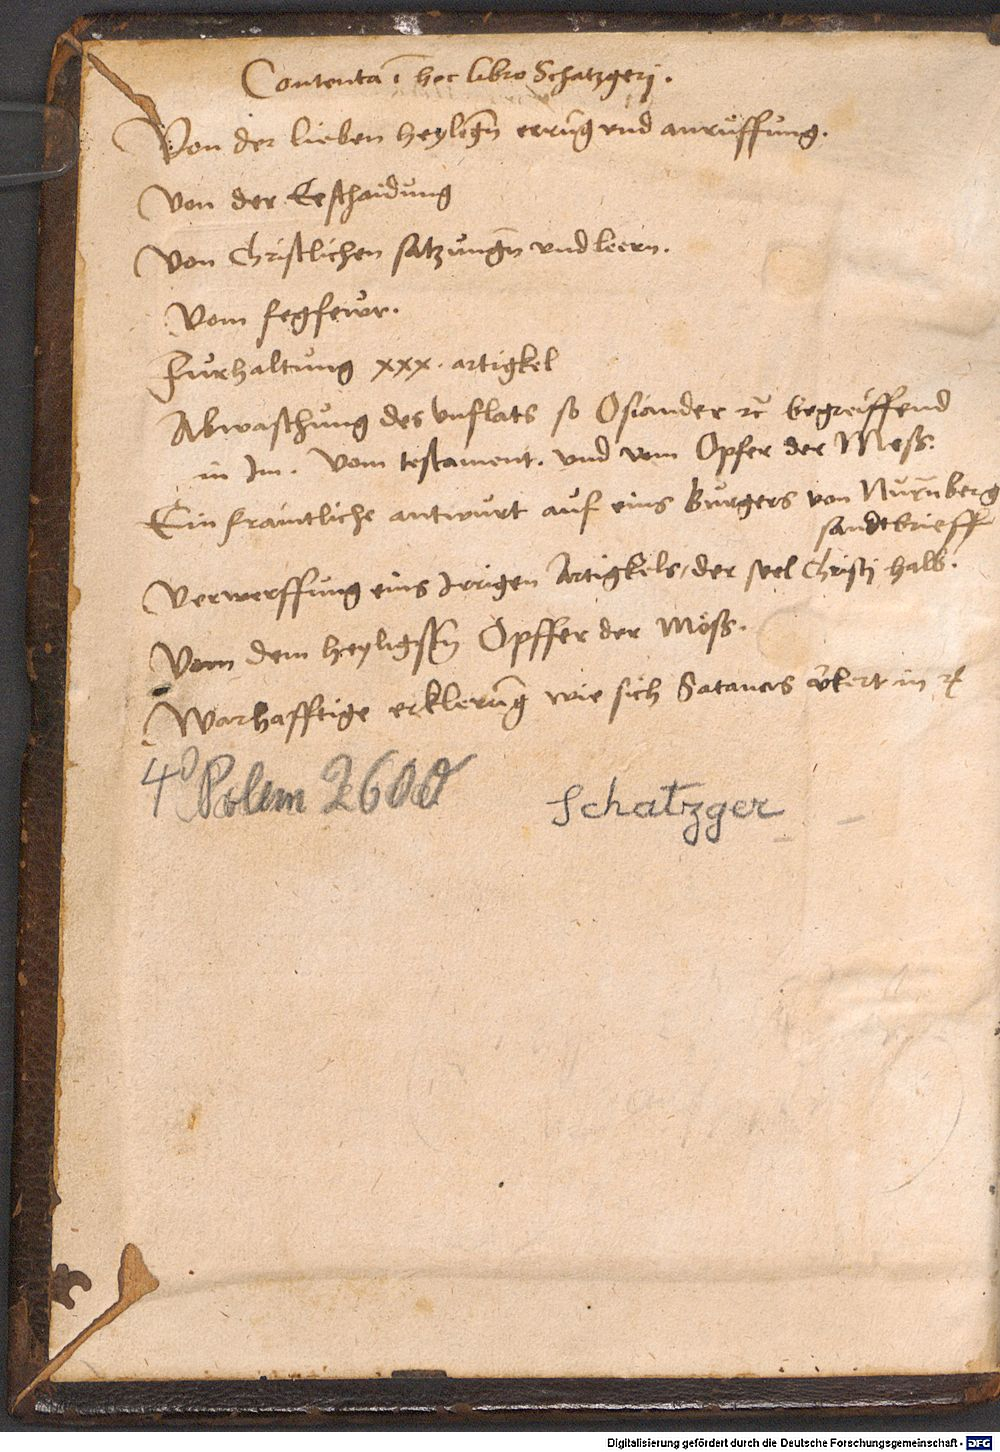 Contenta ī hoc libro Schatzgerj.
Von der lieben heyligñ errūg vnd anrůffung.
Von der Eeschaidung
Von Christlichen satzungñ vnd leern.
Vom fegfewr.
Furhaltung xxx. artigkel
Abwaschung des vnflats so Osiander ꝛc̄ begreiffend
in Im. Vom testament. vnd vom Opfer der Mess.
Ein fraintliche antwurt auf eins burgers von Nurñberg
sandtbrieff
Verwerffung eins Irrigen Artigkels/der seel Christi halb.
Vom dem heyligstñ Opffer der Möss.
Warhafftige erklerūg wie sich Satanas in ꝛc
4° Polem 2600
Schatzger
Digitalisierung gefördert durch die Deutsche Forschungsgemeinschaft - DFG